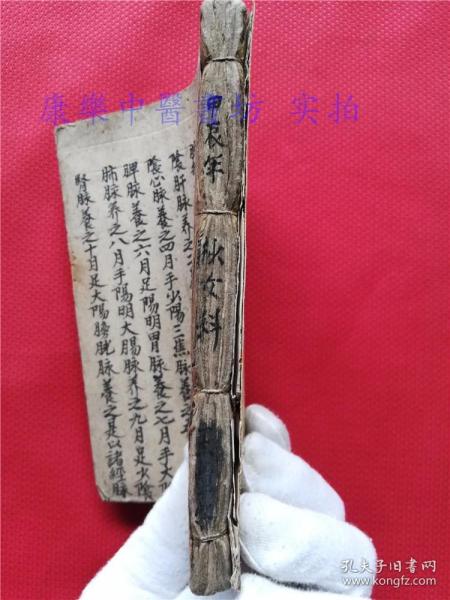 康樂中醫書坊 实拍
甲辰年
秋女科
陰肝脉养之二
陰心脉養之四月手少陽三焦脉養之五
脾脉養之六月足陽明胃脉養之七月手太
肺脉养之八月手陽明大腸脉养之九月足少陰
腎脉養之十月足太陽膀胱脉養之是以諸經脉
孔夫子旧书网
www.kongfz.com